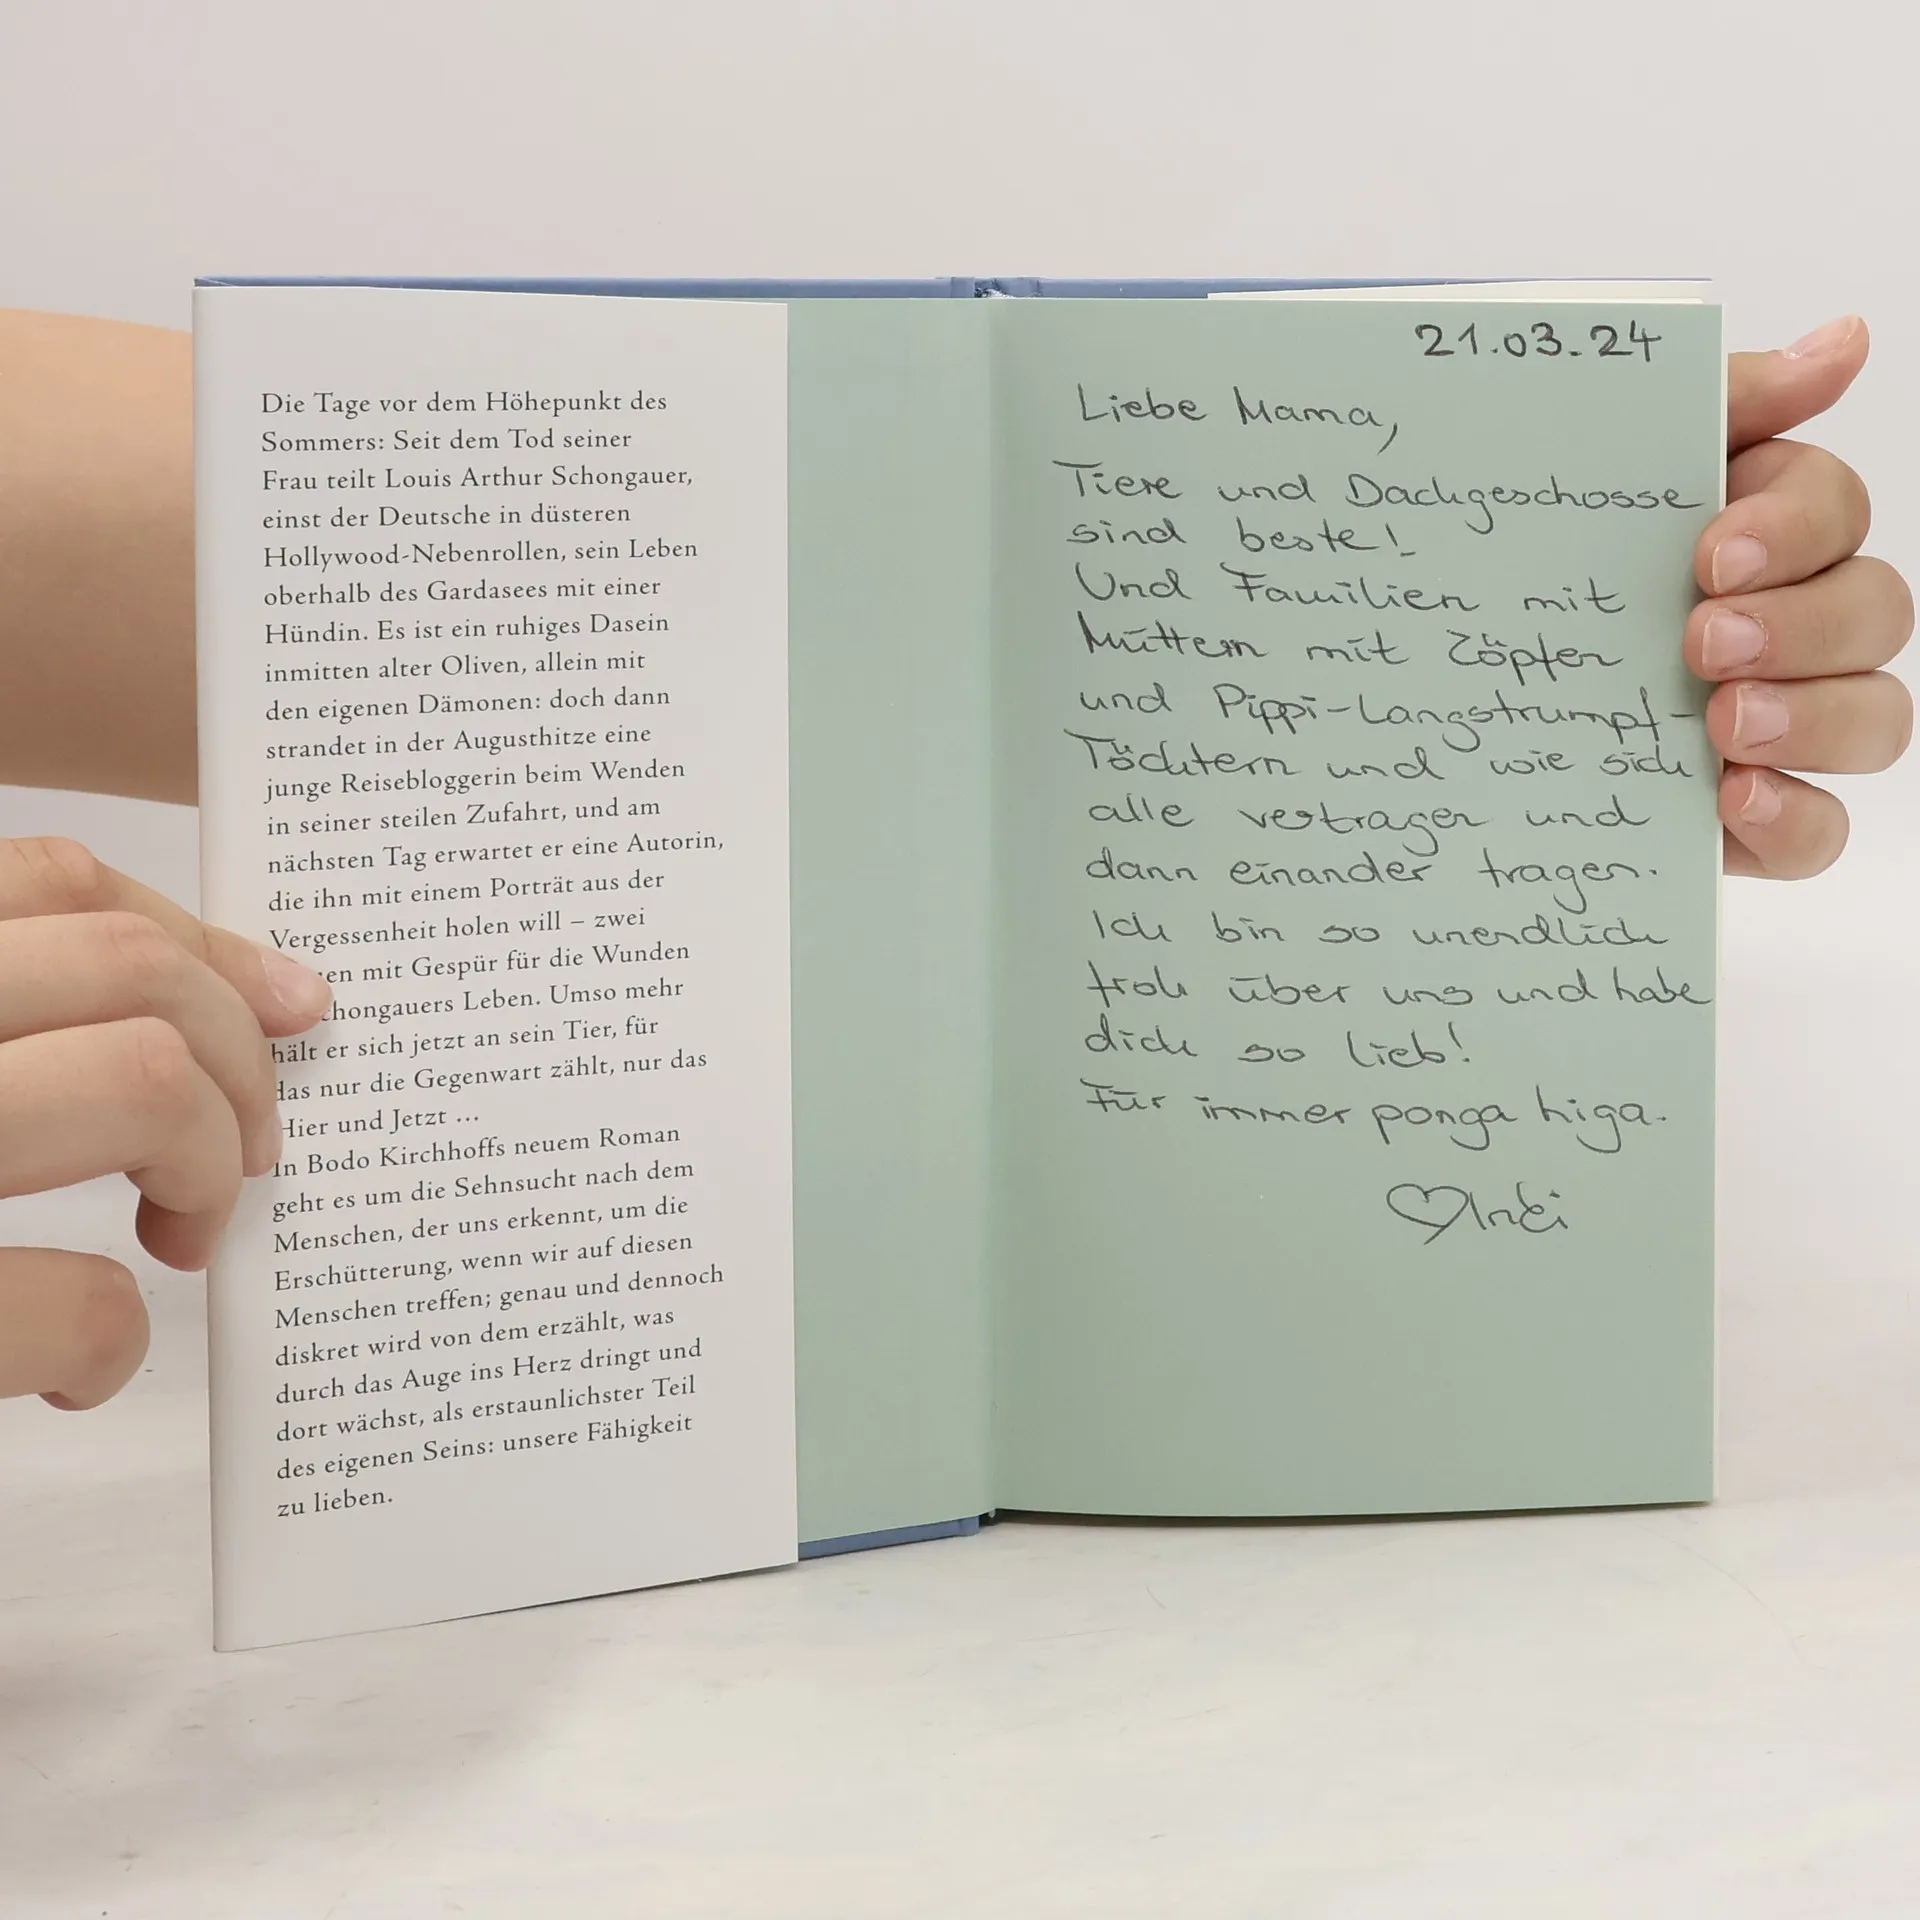 Die Tage vor dem Höhepunkt des
Sommers: Seit dem Tod seiner
Frau teilt Louis Arthur Schongauer,
einst der Deutsche in düsteren
Hollywood-Nebenrollen, sein Leben
oberhalb des Gardasees mit einer
Hündin. Es ist ein ruhiges Dasein
inmitten alter Oliven, allein mit
den eigenen Dämonen: doch dann
strandet in der Augusthitze eine
junge Reisebloggerin beim Wenden
in seiner steilen Zufahrt, und am
nächsten Tag erwartet er eine Autorin,
die ihn mit einem Porträt aus der
Vergessenheit holen will – zwei
en mit Gespür für die Wunden
chongauers Leben. Umso mehr
hält er sich jetzt an sein Tier, für
das nur die Gegenwart zählt, nur das
Hier und Jetzt ...
In Bodo Kirchhoffs neuem Roman
geht es um die Sehnsucht nach dem
Menschen, der uns erkennt, um die
Erschütterung, wenn wir auf diesen
Menschen treffen; genau und dennoch
diskret wird von dem erzählt, was
durch das Auge ins Herz dringt und
dort wächst, als erstaunlichster Teil
des eigenen Seins: unsere Fähigkeit
zu lieben.
21.03.24
Liebe Mama,
Tiere und Dachgeschosse
sind beste!
Und Familien mit
Müttern mit Zöpfen
und Pippi-Langstrumpf-
Töchtern und wie sich
alle vertragen und
dann einander tragen.
Ich bin so unendlich
froh über uns und habe
dich so lieb!
Für immer ponga higa.